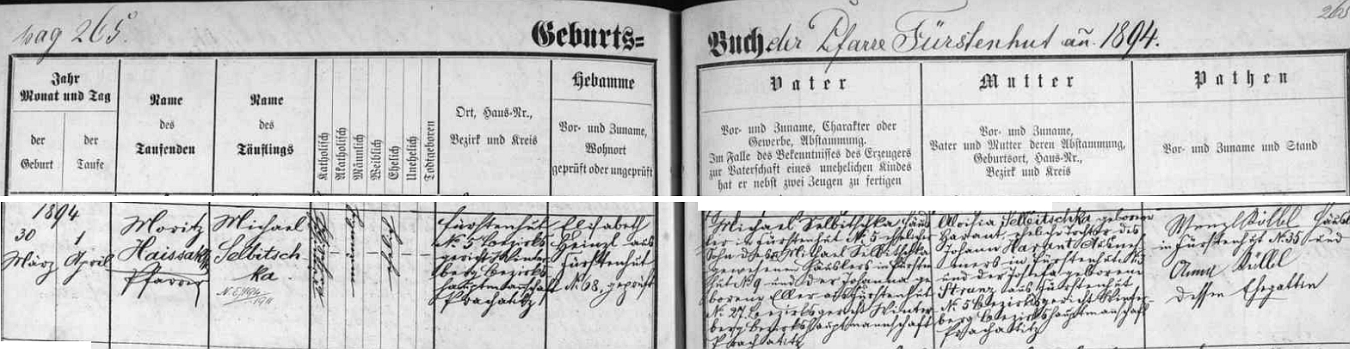 pag 265.
265
Geburts=
Buch der Pfarre Fürstenhut an. 1894.
Jahr
Monat und Tag
der
Geburt
der
Taufe
Name
des
Taufenden
Name
des
Täuflings
Katholisch
Akatholisch
Männlich
Weiblich
Ehelich
Unehelich
Todtgeboren
Ort, Haus-Nr.,
Bezirk und Kreis
Hebamme
Vor- und Zuname,
Wohnort
geprüft oder ungeprüft
Vater
Vor- und Zuname, Charakter oder
Gewerbe, Abstammung.
Im Falle des Bekenntnisses des Erzeugers
zur Vaterschaft eines unehelichen Kindes
hat er nebst zwei Zeugen zu fertigen
Mutter
Vor- und Zuname,
Vater und Mutter deren Abstammung,
Geburtsort, Haus-Nr.,
Bezirk und Kreis
Pathen
Vor- und Zuname und Stand
1894
30
März
1
April
Moritz
Haissak
Pfarrer
Michael
Selbitsch
ka.
katholisch
männlich
ehelich
Fürstenhut
N. 5 Bezirks
gericht Winter
berg Bezirks
hauptmannschaft
Prachatitz
Elisabeth
Heinzl aus
Fürstenhut
N. 68, geprüft
Michael Selbitschka Häus
ler in Fürstenhut N. 5 ehelicher
Sohn des Michael Selbitschka
gewesenen Häuslers in Fürsten
hut N. 9 und der Johanna ge
borene Eller aus Fürstenhut
N. 27 Bezirksgericht Winter
berg Bezirkshauptmannschaft
Prachatitz
Aloisia Selbitschka geborene
Harant, eheliche Tochter des
Johann Harant
in Fürstenhut N. 5
und der Josefa geborene
Stranz aus Fürstenhut
N. 5 Bezirksgericht Winter
berg Bezirkshauptmannschaft
Prachatitz
Wenzl Külbl Häusler
in Fürstenhut N. 35 und
Anna Külbl
dessen Ehegattin